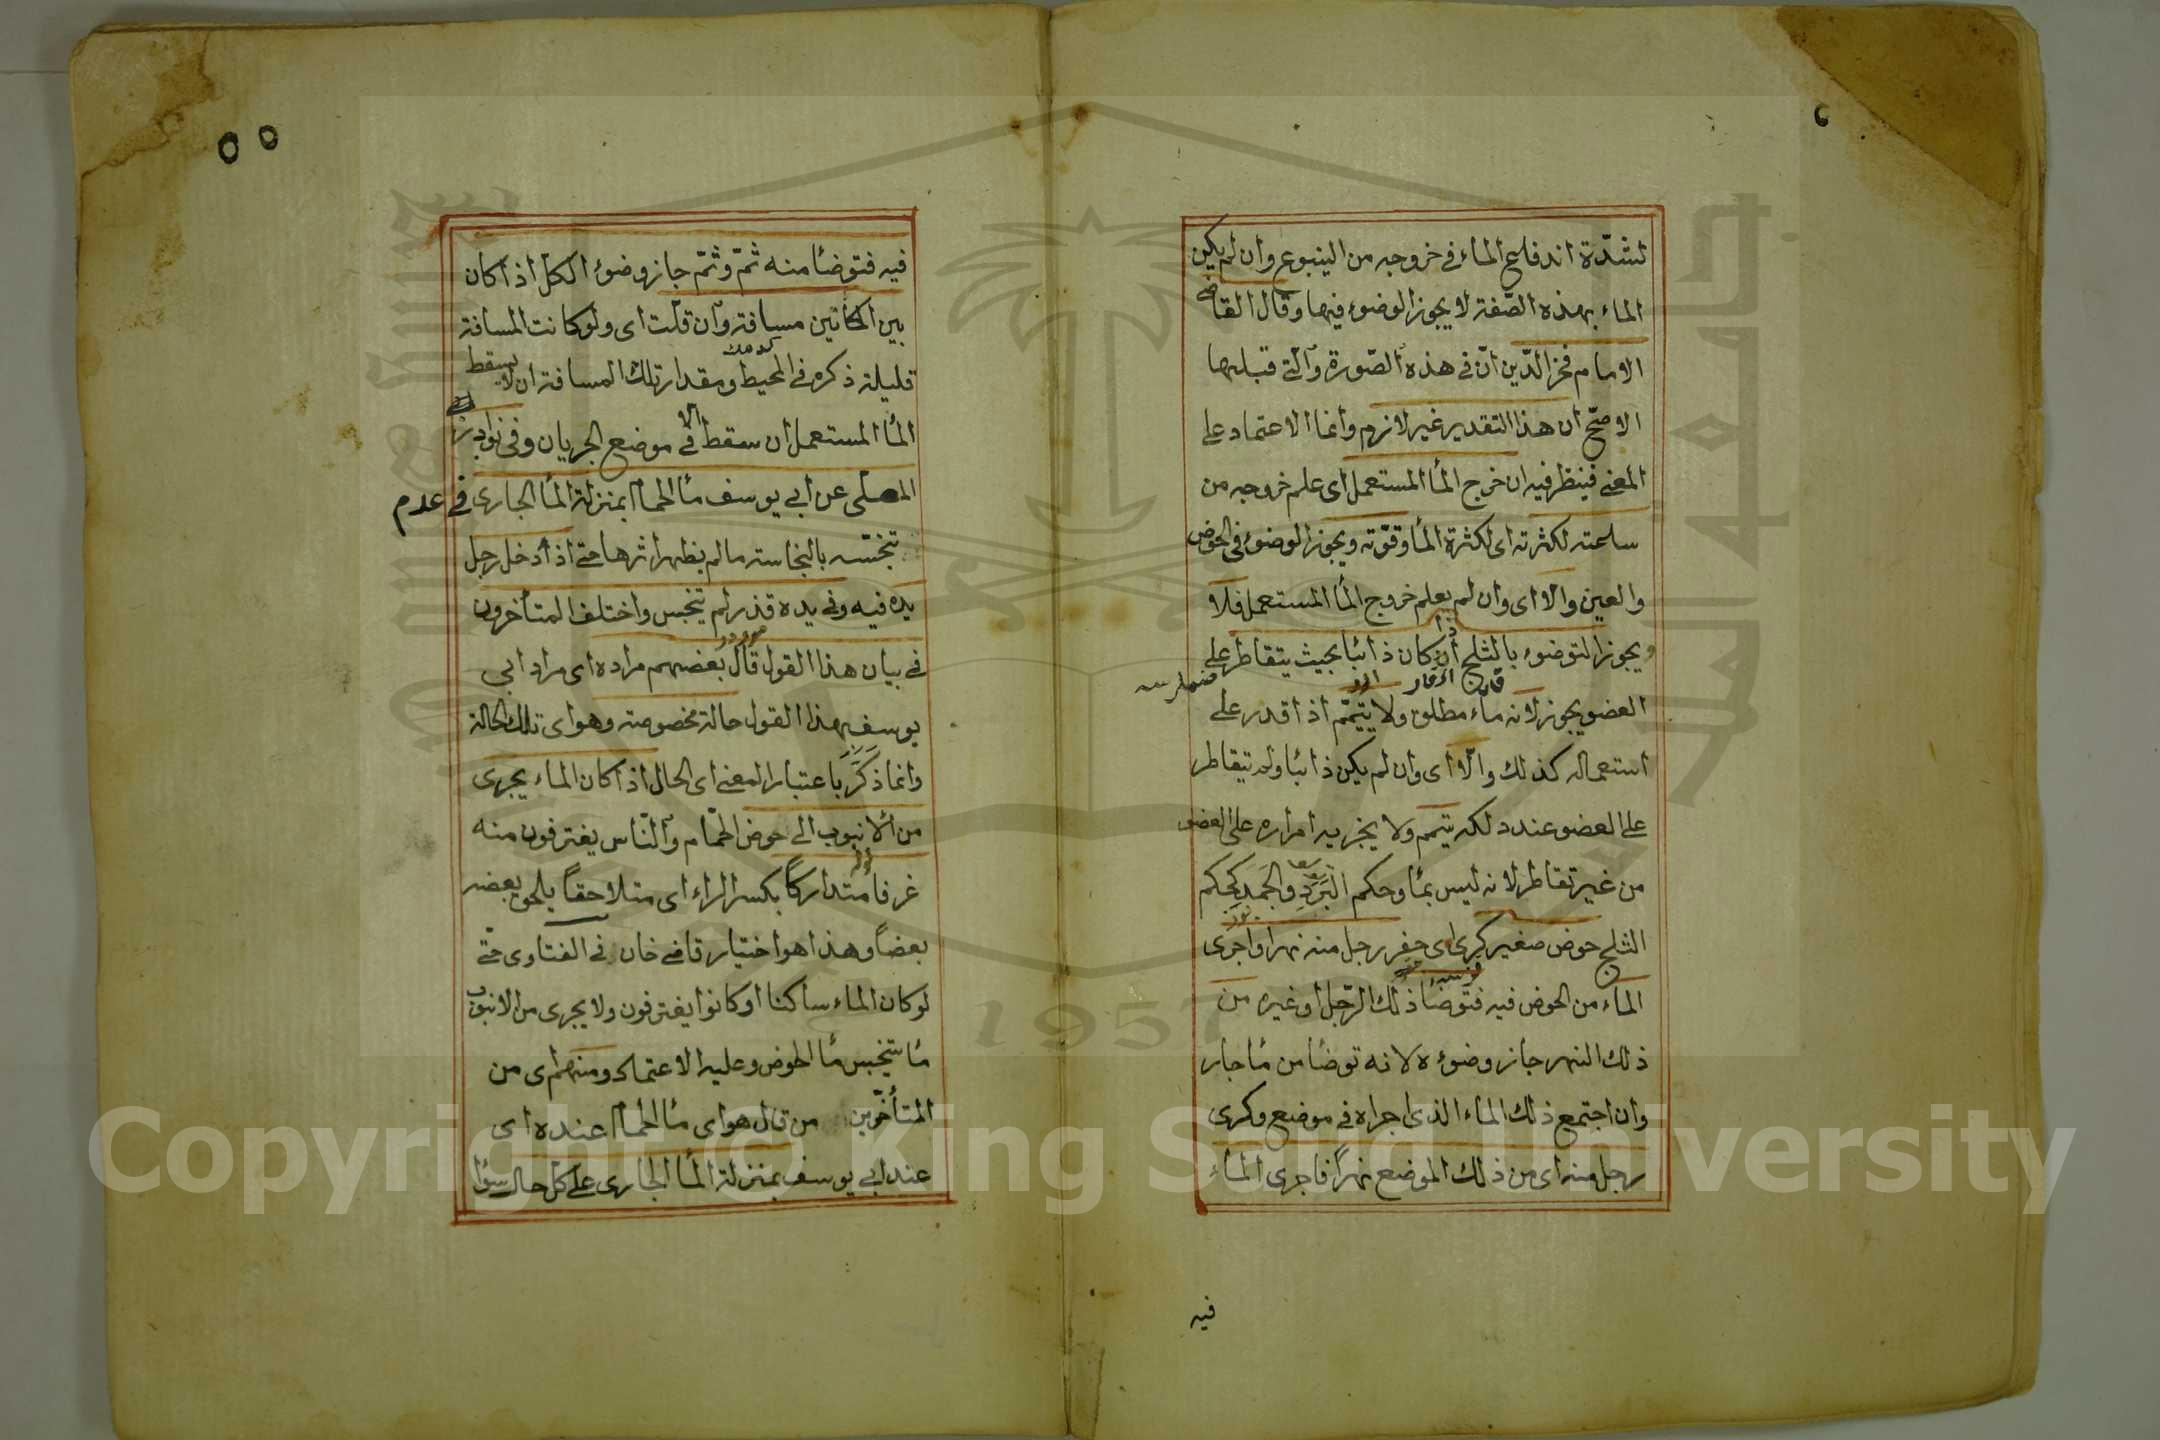 لشدّة اندفاع الماء في خروجه من الينبوع وان لم يكن
الماء بهذه الصّفة لا يجوز الوضوء فيها وقال القاضي
الامام فخر الدّين انّ في هذه الصّورة والّتي قبلها
الاصحّ ان هذا التقدير غير لازم وانما الاعتماد على
المعنى فينظر فيه ان خرج الماء المستعمل اى علم خروجه من
لكثرته اى لكثرة الماء وقوّته ويجوز الوضوء في الحوض
والعين والا اى وان لم يعلم خروج الماء المستعمل فلا
ويجوز التوضوء بالثلج ان كان ذائبا بحيث يتقاطر على
العضو يجوز لانه ماء مطلق ولا يتيمّم اذا قدر على
استعماله كذلك والّا اى وان لم يكن ذائبا ولم يتقاطر
على العضو عند دلكه يتيمم ولا يجزيه امراره على العضو
من غير تقاطر لانه ليس بماء وحكم البَرَدِ والجَمَدِ كحكم
الثلج حوض صغير كرى اى حفر رجل منه نهرا واجرى
الماء من الحوض فيه فتوضأ ذلك الرّجل او غيره من
ذلك النهر جاز وضوءه لانه توضأ من ماء جار
وان اجتمع ذلك الماء الذى اجراه في موضع وكرى
رجل منه اى من ذلك الموضع نهراً فاجرى الماء
فيه
٥٥
فيه فتوضأ منه ثمّ وثمّ جاز وضوء الكلّ اذا كان
بين المكانين مسافة وان قلّت اى ولو كانت المسافة
قليلة ذكره في المحيط ومقدار تلك المسافة ان لا يسقط
الماء المستعمل ان سقط الا في موضع الجريان وفى نوادر
المصلى عن ابي يوسف ماء الحمام بمنزلة الماء الجارى في عدم
تنجّسه بالنجاسة ما لم يظهر اثرها حتى اذا أدخل رجل
يده فيه وفي يده قذر لم يتنجس واختلف المتأخرون
في بيان هذا القول قال بعضهم مراده اى مراد ابى
يوسف بهذا القول حالة مخصوصة وهو اى تلك الحالة
وانما ذكّر باعتبار المعنى اى الحال اذا كان الماء يجرى
من الانبوب الى حوض الحمّام والنّاس يغترفون منه
غرفا متداركاً بكسر الراء اى متلاحقاً يلحق بعضه
بعضاً وهذا هو اختيار قاضى خان في الفتاوى حتّى
لو كان الماء ساكنا او كانوا يغترفون ولا يجرى من الانبوب
ماء يتنجس ماء الحوض وعليه الاعتماد ومنهم اى من
المتأخّرين من قال هو اى ماء الحمام عنده اى
عند ابي يوسف بمنزلة الماء الجارى على كل حال سواء
Copyright © King Saud University
1957